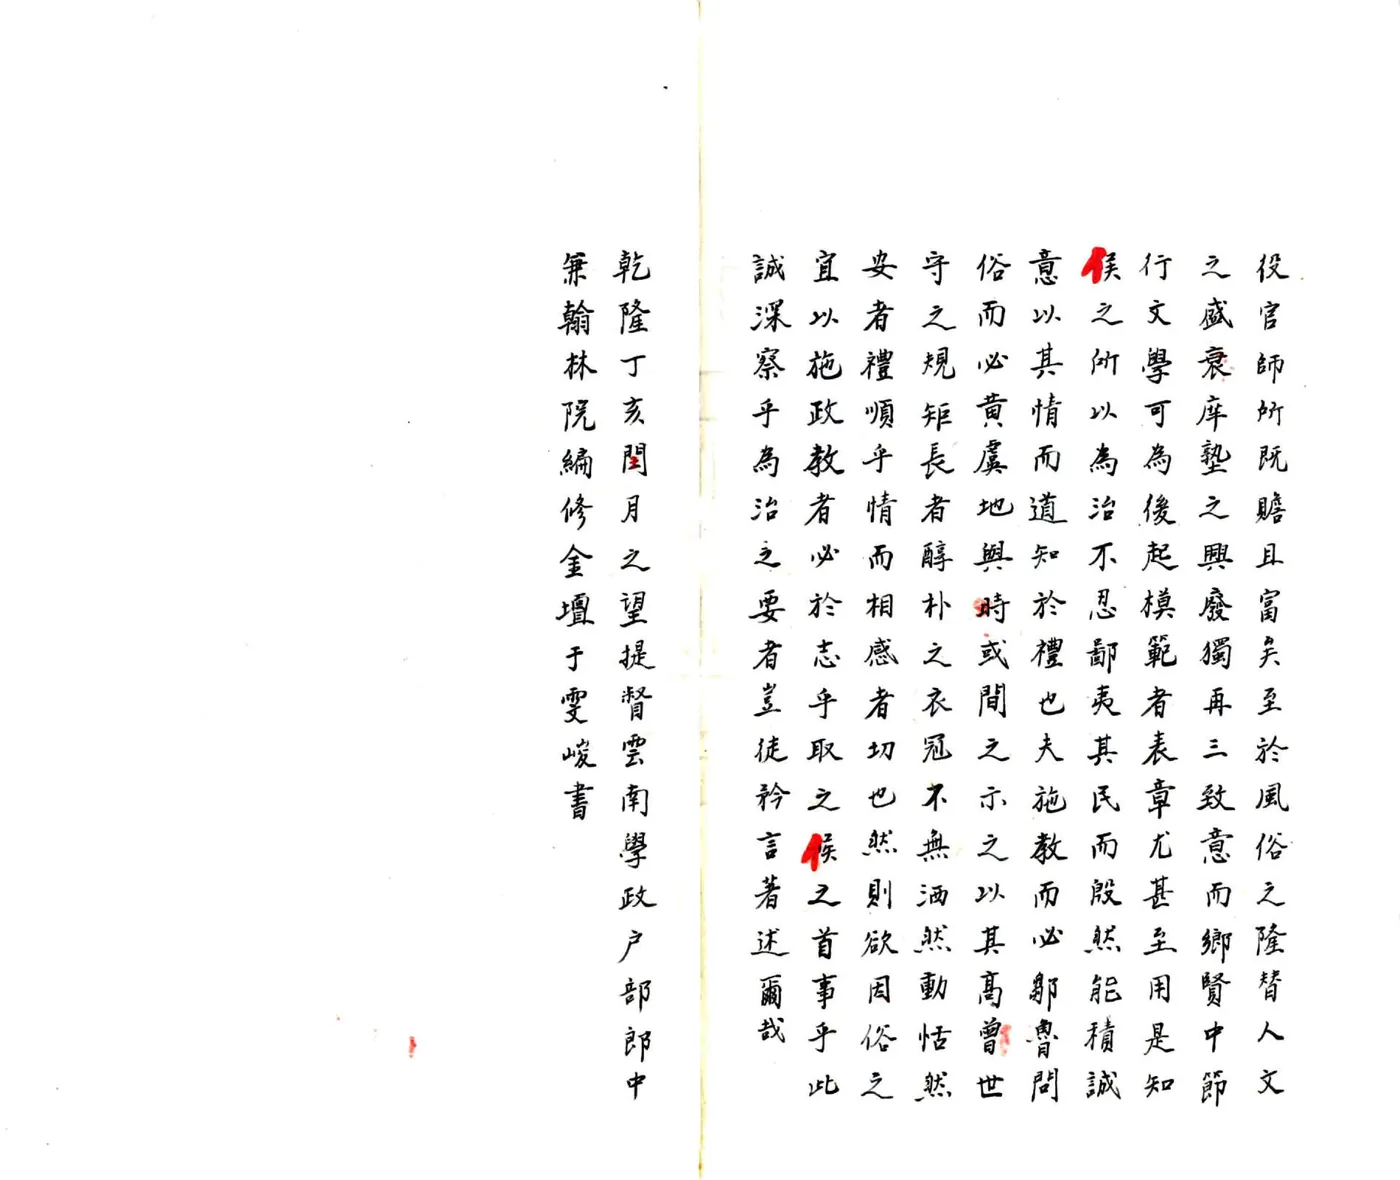 役官師所既贍且富矣至於風俗之隆替人文
之盛衰庠塾之興廢獨再三致意而鄉賢中節
行文學可為後起模範者表章尤甚至用是知
侯之所以為治不忍鄙夷其民而殷然能積誠
意以其情而道知於禮也夫施教而必鄒魯問
俗而必黄虞地與時或間之示之以其高曾世
守之規矩長者醇朴之衣冠不無洒然動恬然
安者禮順乎情而相感者切也然則欲因俗之
宜以施政教者必於志乎取之侯之首事乎此
誠深察乎為治之要者豈徒矜言著述爾哉
乾隆丁亥閏月之望提督雲南學政户部郎中
兼翰林院編修金壇于雯峻書